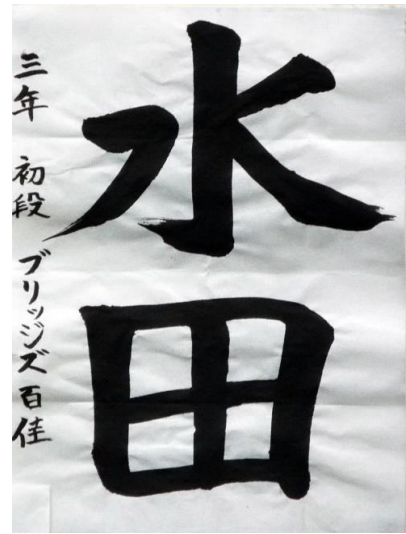 水田
三年 初段 ブリッジズ百佳